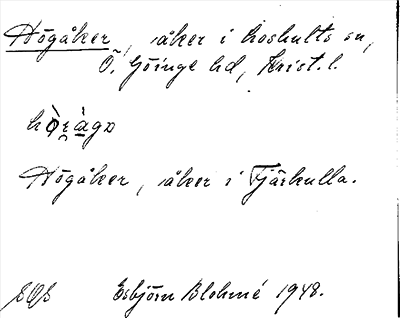 Högåker, åker i Loshults sn,
Ö. Göinge hd, Krist. l.
Högåker, åker i Tjärkulla.
Esbjörn Blohmé 1948.